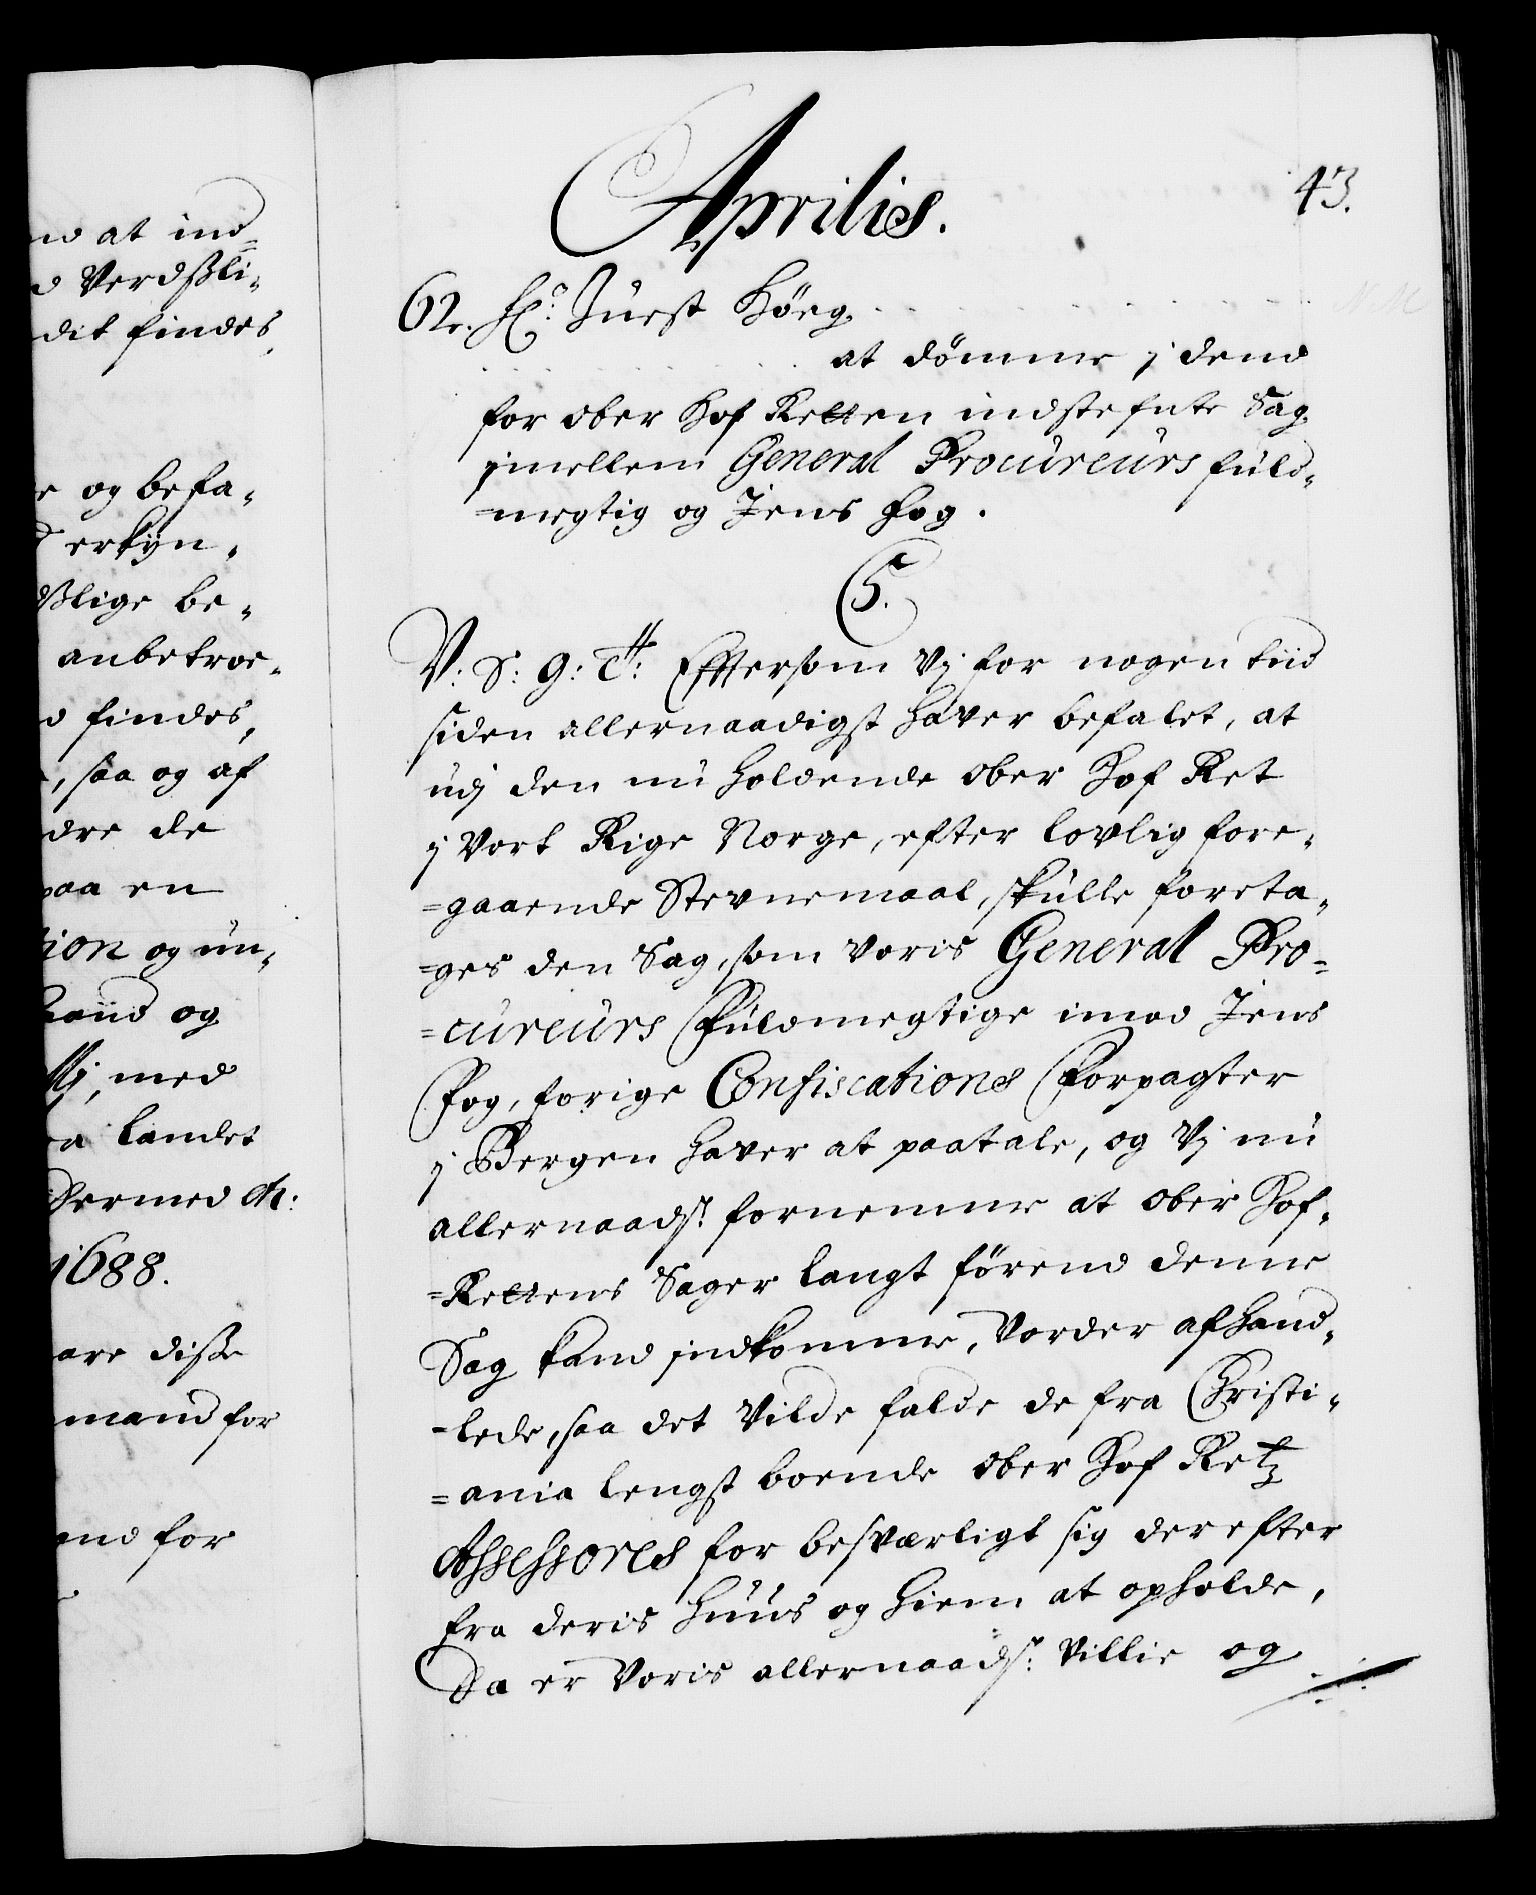 nd at ind=
d Verdßli-
dit findes,
e og befa-
erkyn-
ßlige be-
anbetroe-
d findes,
, saa og af
dre de
paa en
tion og un-
haand og
Vj, med
a landet
Dermed &:
1688.
are disse
mand for
end for
Aprilis.
43.
62. Hr: Juest Höeg
at dömme j dend
for ober Hof Retten indstefnte Sag
jmellem General Procureurs fuld-
=megtig og Jens Fog.
5.
V: S: G: A: Eftersom Vj for nogen tiid
siden allernaadigst haver befalet, at
udj den nu holdende Ober Hof Ret
j Vort Rige Norge, efter lovlig fore-
=gaaende Stevnemaal, skulle foreta-
=ges den Sag, som Voris General Pro=
=cureurs Fuldmegtige imod Jens
Fog, forige Confiscations Forpagter
j Bergen haver at paatale, og Vj nu
allernaadst: fornemme at Ober Hof-
=Rettens Sager langt förend denne
Sag kand indkomme, Vorder afhand-
-lede, saa det Vilde falde de fra Christi-
=ania lengst boende Ober Hof Retz
Assessores for besværligt sig derefter
fra deris Huus og Hiem at opholde,
Da er Voris allernaadst: Villie og